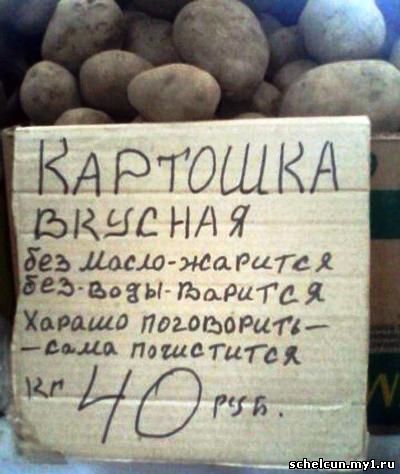 КАРТОШКА
ВКУСНАЯ
без масло-жарится
без-воды-варится
Харашо поговорить-
-сама почистится
кг 40 руб.
schelcun.my1.ru